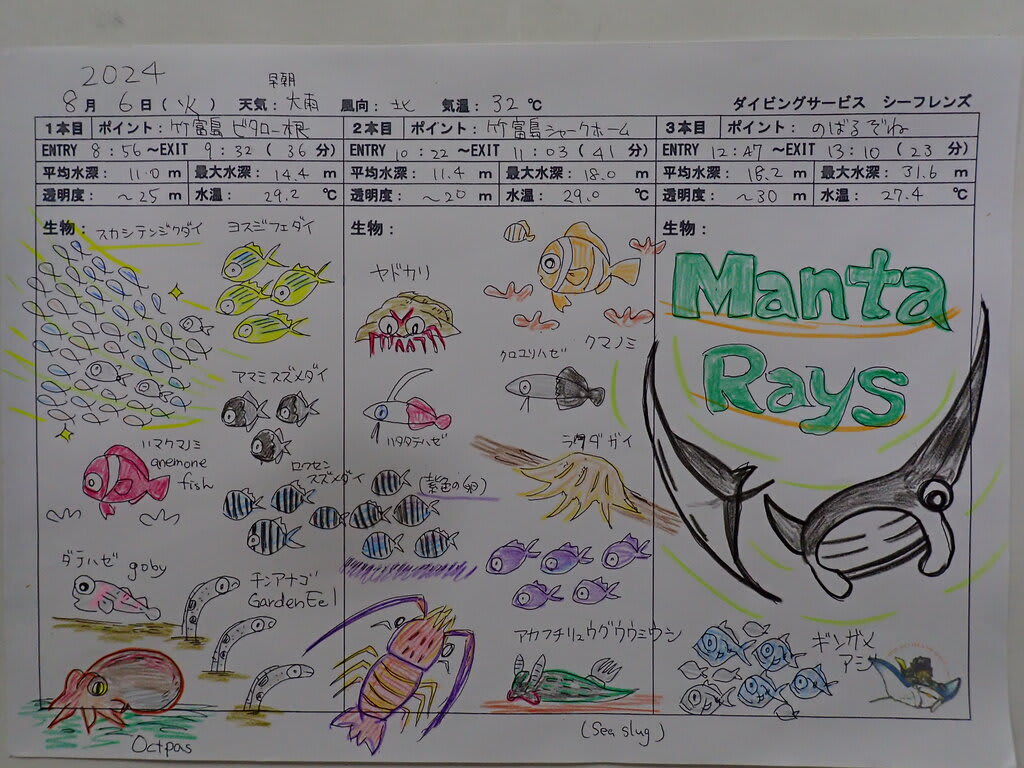 2024
早朝
8月 6日(火) 天気: 大雨 風向: 北 気温: 32 ℃ ダイビングサービス シーフレンズ
1本目 ポイント: 竹富島 ビタロー根 2本目 ポイント: 竹富島シャークホーム 3本目 ポイント: のばるぞね
ENTRY 8:56 ~EXIT 9:32 ( 36 分) ENTRY 10:22 ~EXIT 11:03 ( 41 分) ENTRY 12:47 ~EXIT 13:10 ( 23 分)
平均水深: 11.0 m 最大水深: 14.4 m 平均水深: 11.4 m 最大水深: 18.0 m 平均水深: 18.2 m 最大水深: 31.6 m
透明度: ~25 m 水温: 29.2 ℃ 透明度: ~20 m 水温: 29.0 ℃ 透明度: ~30 m 水温: 27.4 ℃
生物: スカシテンジクダイ ヨスジフエダイ
アマミスズメダイ
ハマクマノミ
anemone
fish
ロクセン
スズメダイ
(紫色の卵)
ダテハゼ goby
チンアナゴ
Garden Eel
Octpas
生物:
ヤドカリ
クマノミ
クロユリハゼ
ハタタテハゼ
アカフチリュウグウウミウシ
(Sea slug)
生物:
Manta
Rays
ギンガメ
アジ